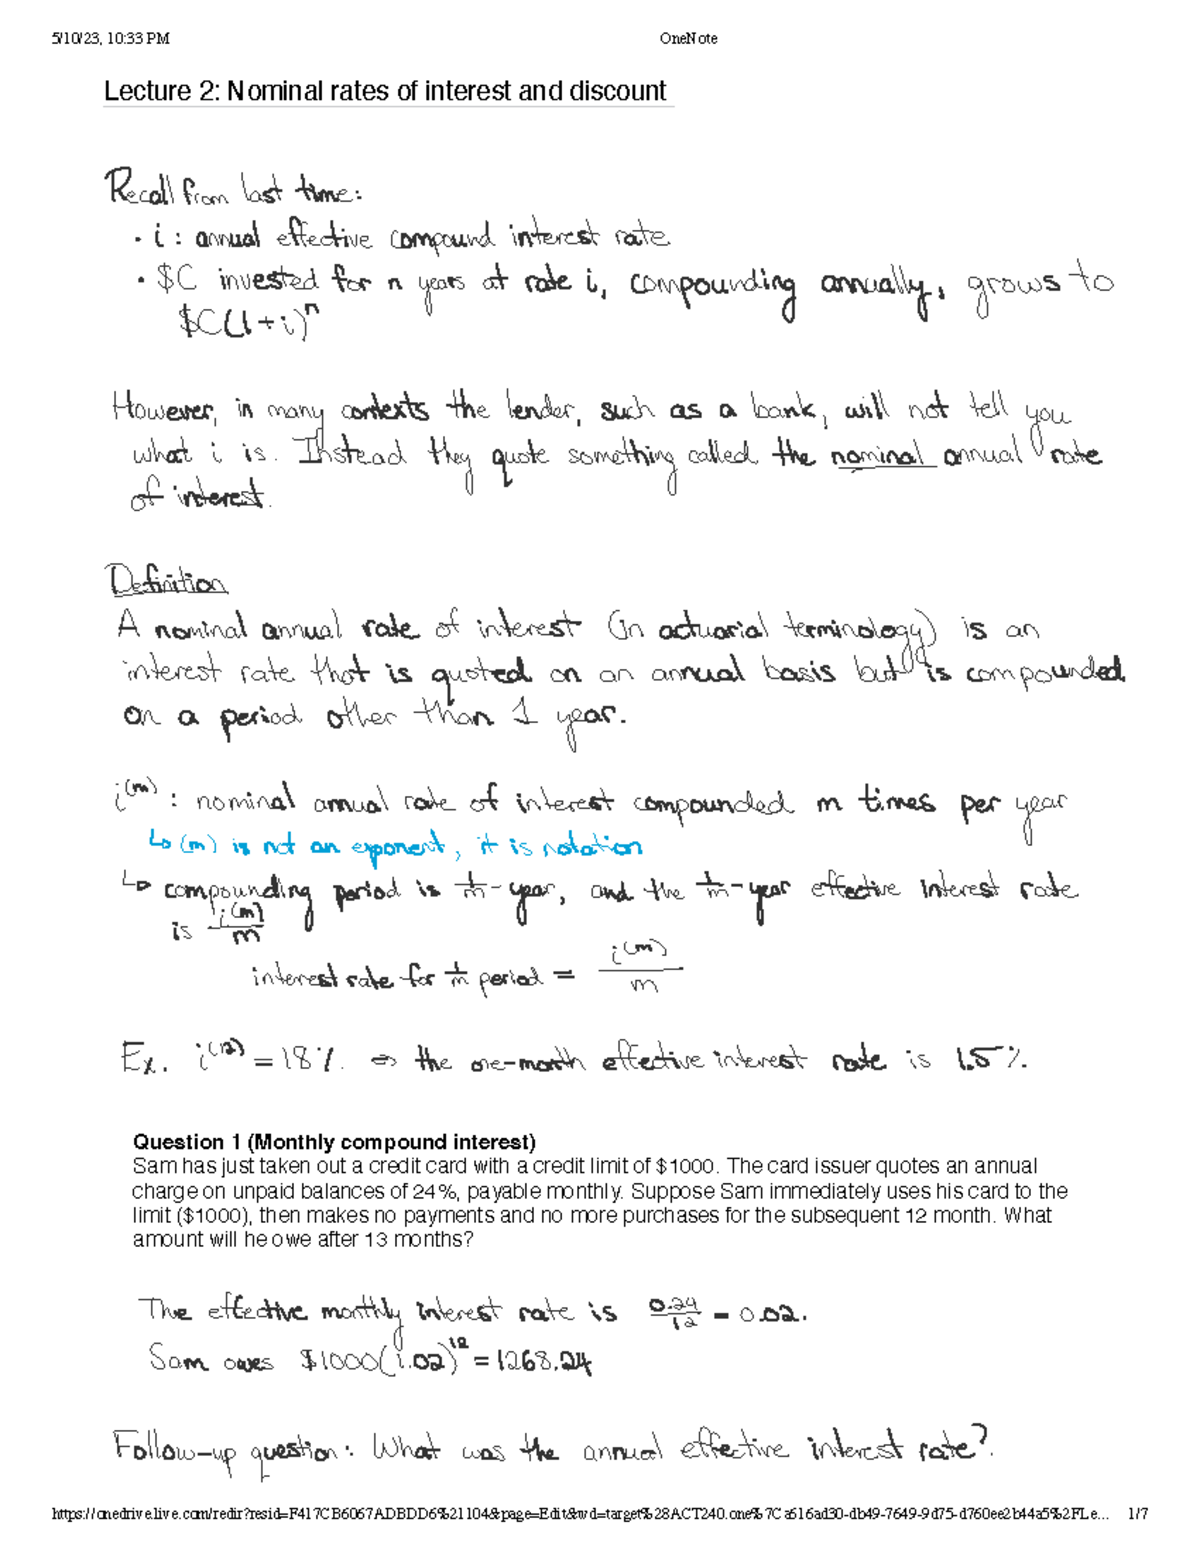 5/10/23, 10:33 PM OneNote
Lecture 2: Nominal rates of interest and discount
Recall from last time:
• i : annual effective compound interest rate
• $C invested for n years at rate i, compounding annually, grows to
$C(1+i)^n
However, in many contexts the lender, such as a bank, will not tell you
what i is. Instead they quote something called the nominal annual rate
of interest.
Definition
A nominal annual rate of interest (in actuarial terminology) is an
interest rate that is quoted on an annual basis but is compounded
on a period other than 1 year.
i^(m) : nominal annual rate of interest compounded m times per year
↳ (m) is not an exponent, it is notation
↳ compounding period is 1/m-year, and the 1/m-year effective interest rate
is i^(m)/m
interest rate for 1/m period = i^(m)/m
Ex. i^(12) = 18% ⇒ the one-month effective interest rate is 1.5%.
Question 1 (Monthly compound interest)
Sam has just taken out a credit card with a credit limit of $1000. The card issuer quotes an annual
charge on unpaid balances of 24%, payable monthly. Suppose Sam immediately uses his card to the
limit ($1000), then makes no payments and no more purchases for the subsequent 12 month. What
amount will he owe after 13 months?
The effective monthly interest rate is 0.24/12 = 0.02.
Sam owes $1000(1.02)^12 = 1268.24
Follow-up question: What was the annual effective interest rate?
https://onedrive.live.com/redir?resid=F417CB6067ADBDD6%21104&page=Edit&wd=target%28ACT240.one%7Ca616ad30-db49-7649-9d75-d760ee2b44a5%2FLe... 1/7